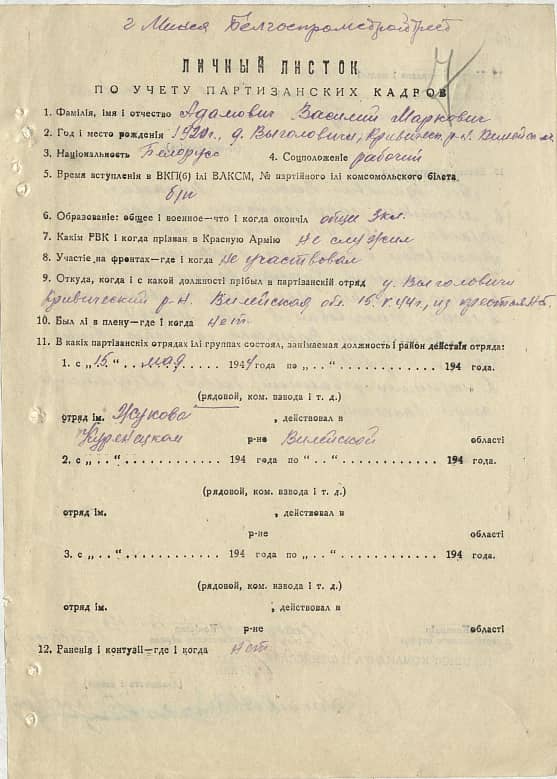 г Минск Белгоспромстройтрест
ЛИЧНЫЙ ЛИСТОК
ПО УЧЕТУ ПАРТИЗАНСКИХ КАДРОВ
1. Фамілія, імя і отчество Адамович Василий Маркович
2. Год і место рождения 1920 г. д. Выголовичи, Кривичск. р-н. Вилейск
3. Національность Белорусс 4. Соцположеніе рабочий
5. Время вступления в ВКП(б) ілі ВЛКСМ, № партійного ілі комсомольского білета
б/п
6. Образованіе: общее і военное—что і когда окончіл общее 3 кл.
7. Какім РВК і когда прізван в Красную Армію не служил
8. Участіе на фронтах—где і когда не участвовал
9. Откуда, когда і с какой должності прібыл в партізанскій отряд д. Выголовичи
Кривический р-н. Вилейская обл. 15.V.44 г., из
10. Был лі в плену—где і когда нет
11. В какіх партізанскіх отрядах ілі группах состоял, занімаемая должность і район действія отряда:
1. с „15.“ мая 1944 года по „ . . “ . . . . . . . . 194 года.
(рядовой, ком. взвода і т. д.)
отряд ім. Жукова , действовал в
Куренецком р-не Вилейской області
2. с „ . . “ . . . . . . . . 194 года по „ . . “ . . . . . . . . 194 года.
(рядовой, ком. взвода і т. д.)
отряд ім. , действовал в
р-не області
3. с „ . . “ . . . . . . . . 194 года по „ . . “ . . . . . . . . 194 года.
(рядовой, ком. взвода і т. д.)
отряд ім. , действовал в
р-не області
12. Раненія і контузіі—где і когда нет